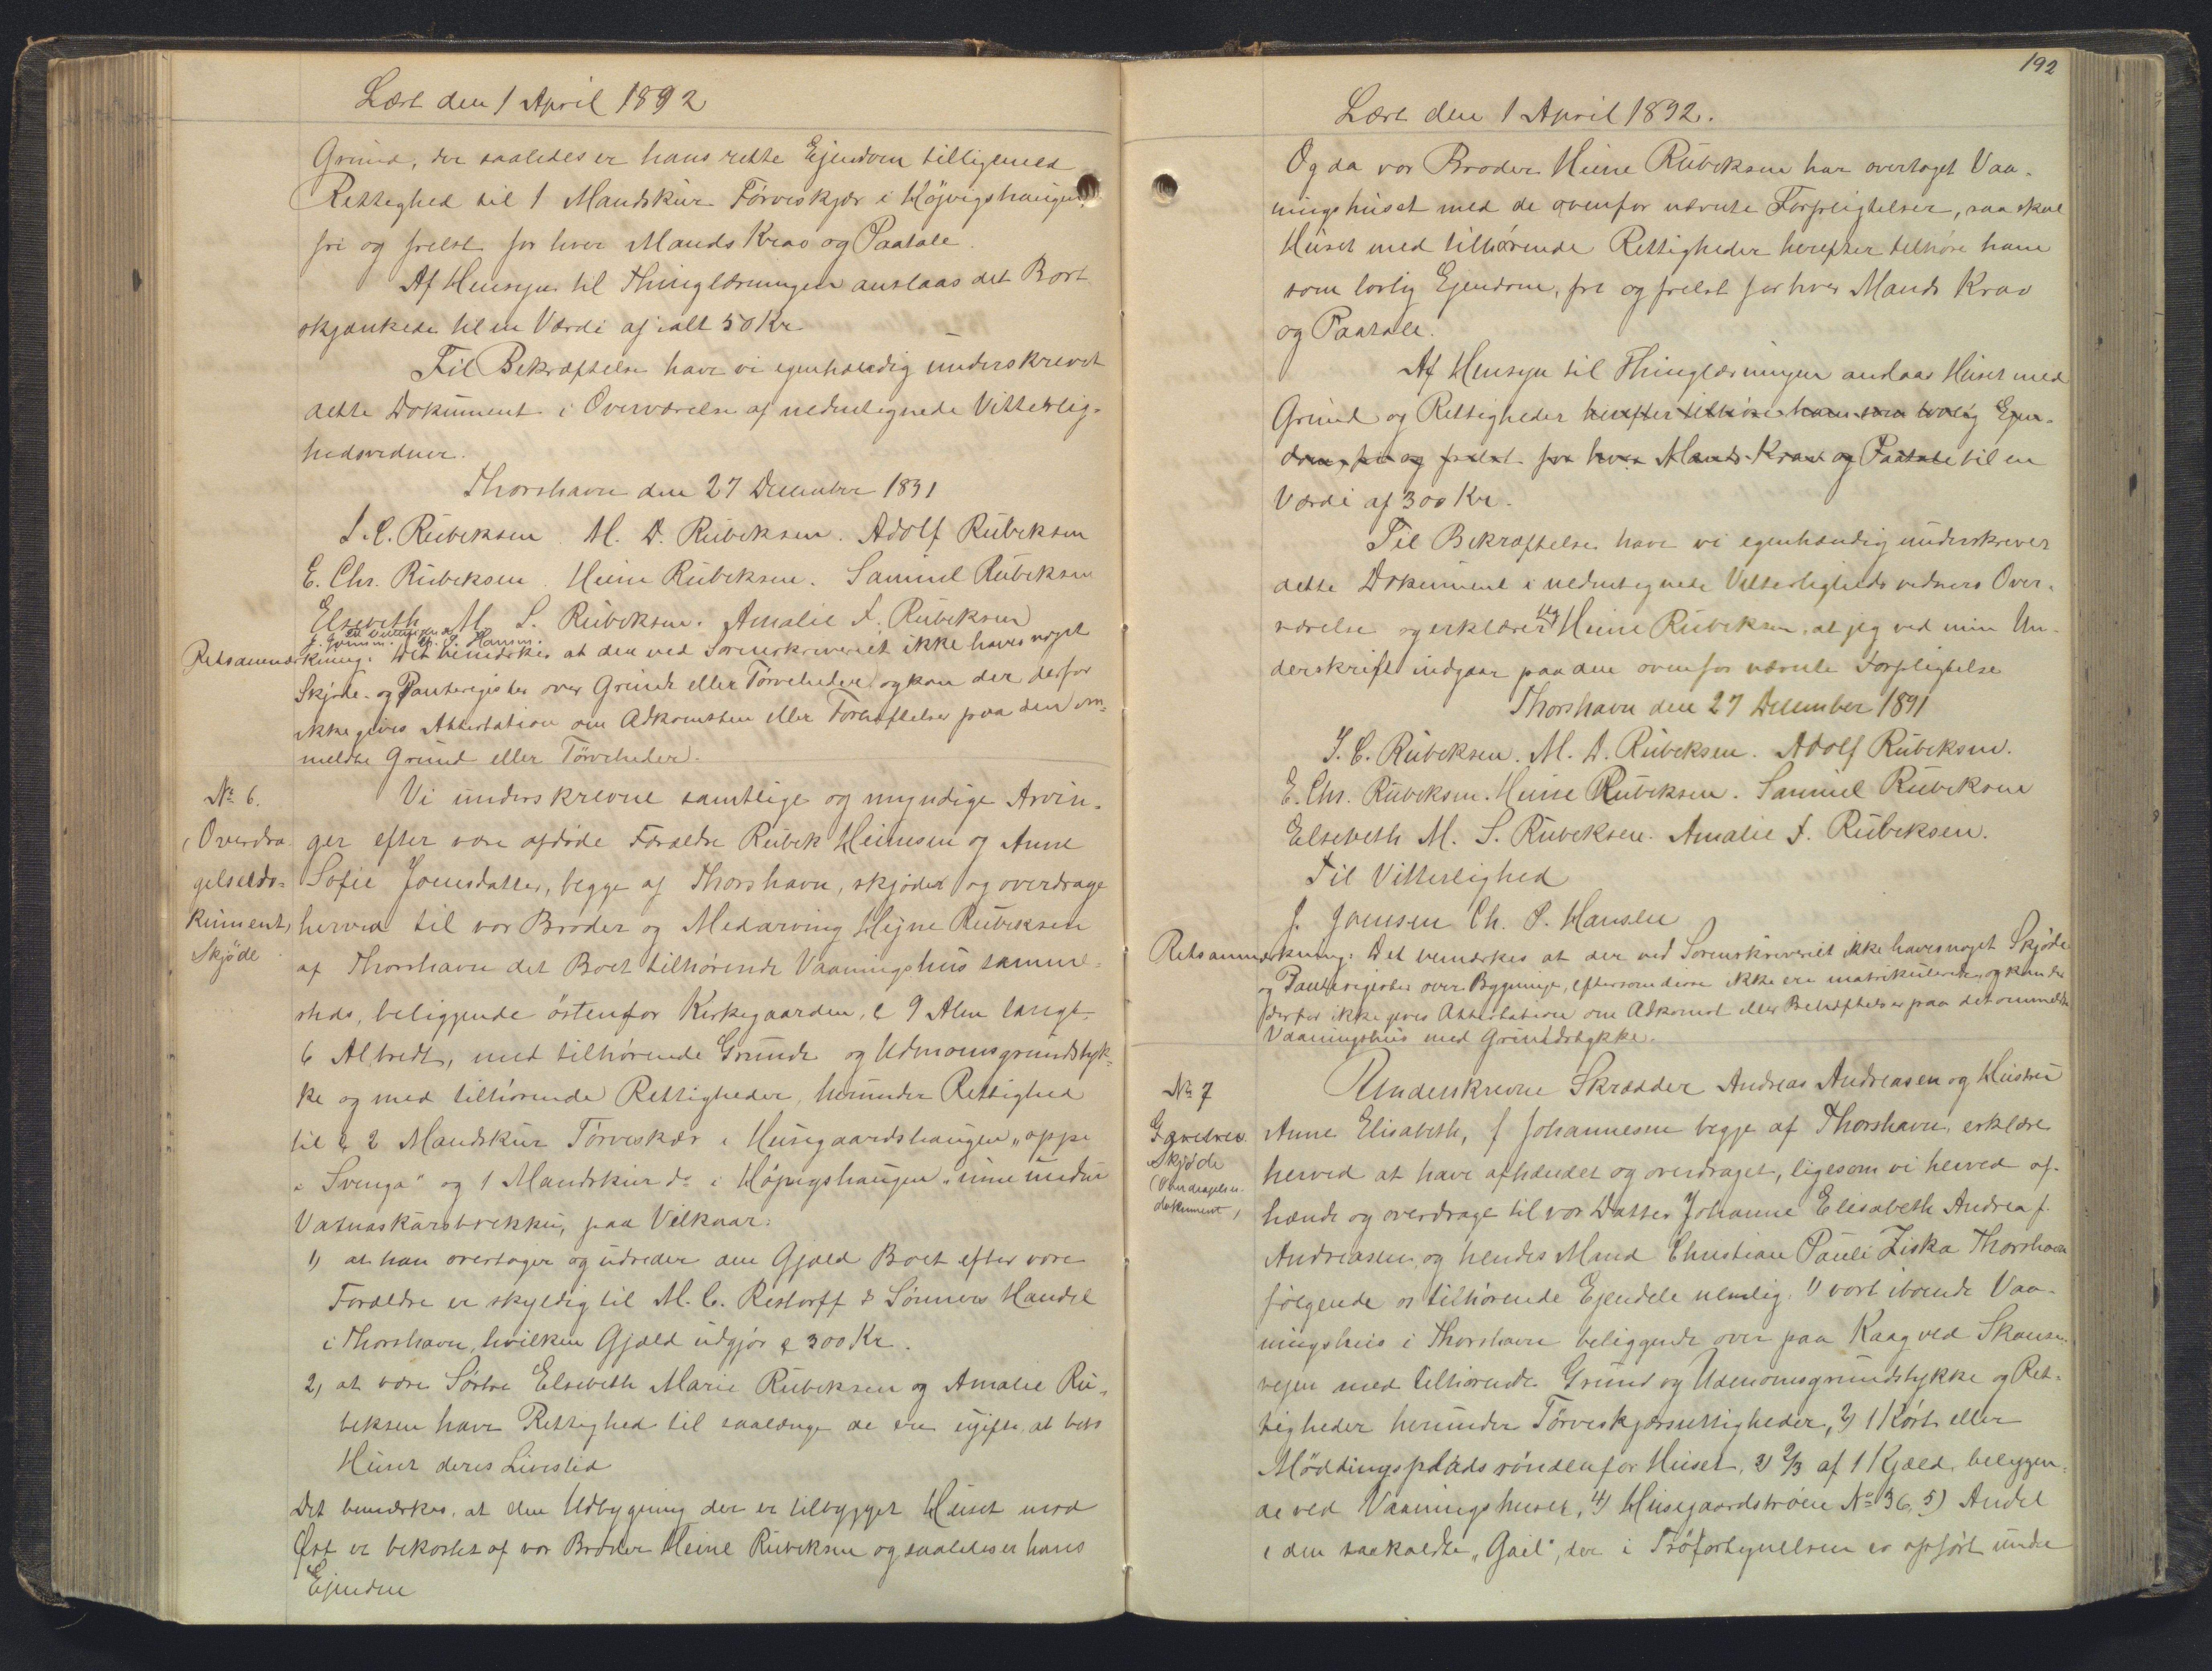 Læst den 1 April 1892
Grund, der saaledes er hans rette Ejendom tilligemed
Rettighed til 1 Mandskur Törveskjær i Höjvigshaugen,
fri og frelst for hver Mands Krav og Paatale.
Af Hensyn til Thinglæsningen anslaas det Bort
skjænkede til en Værdi af ialt 50 Kr
Til Bekræftelse have vi egenhændig underskrevet
dette Dokument i Overværelse af nedentegnede Vitterlig-
hedsvidner.
Thorshavn den 27 December 1891
J. C. Rubeksen. M. D. Rubeksen. Adolf Rubeksen
E. Chr. Rubeksen. Heine Rubeksen. Samuel Rubeksen
Elsebeth M S. Rubeksen. Amalie F. Rubeksen
Til Vitterlighed
J. Joensen. Ch. S. Hansen.
Retsanmærkning: Det bemærkes at den ved Sorenskriveriet ikke haves noget
Skjøde- og Panteregister over Grunde eller Törveheder og kan der derfor
ikke gives Attestation om Adkomsten eller Behæftelser paa den om-
meldte Grund eller Törveheder.
No 6.
(Overdra-
gelsesdo-
kument)
Skjöde
Vi underskrevne samtlige og myndige Arvin-
ger efter vore afdöde Forældre Rubek Heinesen og Anne
Sofie Joensdatter, begge af Thorshavn, skjöder og overdrage
herved til vor Broder og Medarving Hejne Rubeksen
af Thorshavn det Boet tilhørende Vaaningshus samme-
steds, beliggende östenfor Kirkegaarden, c 9 Alen langt,
6 Al bredt, med tilhørende Grunde og Udmomsgrundstyk-
ke og med tilhörende Rettigheder, herunder Rettighed
til c 2 Mandskur Törveskær i Husegaardshaugen „oppi
i Svenga" og 1 Mandskur do i Höjvigshaugen „inni undir
Vatnaskørsbrekku, paa Vilkaar:
1) at han overtager og udreder den Gjæld Boet efter vore
Forældre er skyldig til M. C. Restorff & Sönners Handel
i Thorshavn, hvilken Gjæld udgjör c 300 Kr.
2, at vore Søstre Elsebeth Marie Rubeksen og Amalie Ru-
beksen have Rettighed til saalænge de ere ugifte, at bebo
Huset deres Livstid
Det bemærkes, at den Udbygning der er tilbygget Huset mod
Öst er bekostet af vor Broder Heine Rubeksen og saaledes er hans
Ejendom
192
Læst den 1 April 1892.
Og da vor Broder Heine Rubeksen har overtaget Vaa-
ningshuset med de ovenfor nævnte Forpligtelser, saa skal
Huset med tilhørende Rettigheder herefter tilhöre ham
som lovlig Ejendom, fri og frelst for hver Mands Krav
og Paatale.
Af Hensyn til Thinglæsningen anslaas Huset med
Grund og Rettigheder herefter tilhöre ham som lovlig Ejen-
dom, fri og frelst for hver Mands Krav og Paatale til en
Værdi af 300 Kr.
Til Bekræftelse have vi egenhændig underskrevet
dette Dokument i nedentegnede Vitterligheds vidners Over-
værelse og erklærer jeg Heine Rubeksen, at jeg ved min Un-
derskrift indgaar paa den ovenfor nævnte Forpligtelse
Thorshavn den 27 December 1891
J. C. Rubeksen. M. D. Rubeksen. Adolf Rubeksen.
E. Chr. Rubeksen. Heine Rubeksen. Samuel Rubeksen
Elsebeth M. S. Rubeksen. Amalie F. Rubeksen.
Til Vitterlighed
J. Joensen Ch. S. Hansen
Retsanmærkning: Det bemærkes at der ved Sorenskriveriet ikke haves noget Skjöde
og Panteregister over Bygninge, eftersom disse ikke ere matrikulerede, og kan der
derfor ikke gives Attestation om Adkomst eller Behæftelser paa det ommeldte
Vaaningshus med Grundstykke.
No 7
Gavebrev
Skjöde
(Overdragelses-
dokument)
Underskrevne Skrædder Andreas Andreasen og Hustru
Anne Elisabeth, f Johannesen begge af Thorshavn, erklære
herved at have afhændet og overdraget, ligesom vi herved af-
hænde og overdrage til vor Datter Johanne Elisabeth Andrea f.
Andreasen og hendes Mand Christian Pauli Ziska Thorshavn
følgende os tilhörende Ejendele nemlig. 1) vort iboende Vaa-
ningshus i Thorshavn beliggende over paa Kaag ved Skanse-
vejen med tilhörende Grund og Udmomsgrundstykke og Ret-
tigheder herunder Törveskjærsrettigheder, 2) 1 Kört eller
Möddingsplads söndenfor Huset, 3) 2/3 af 1 Kjæld, beliggen-
de ved Vaaningshuset, 4) Husegaardströen No 36, 5) Andel
i den saakaldte „Gail", der i Tröfortegnelsen er opfört unde